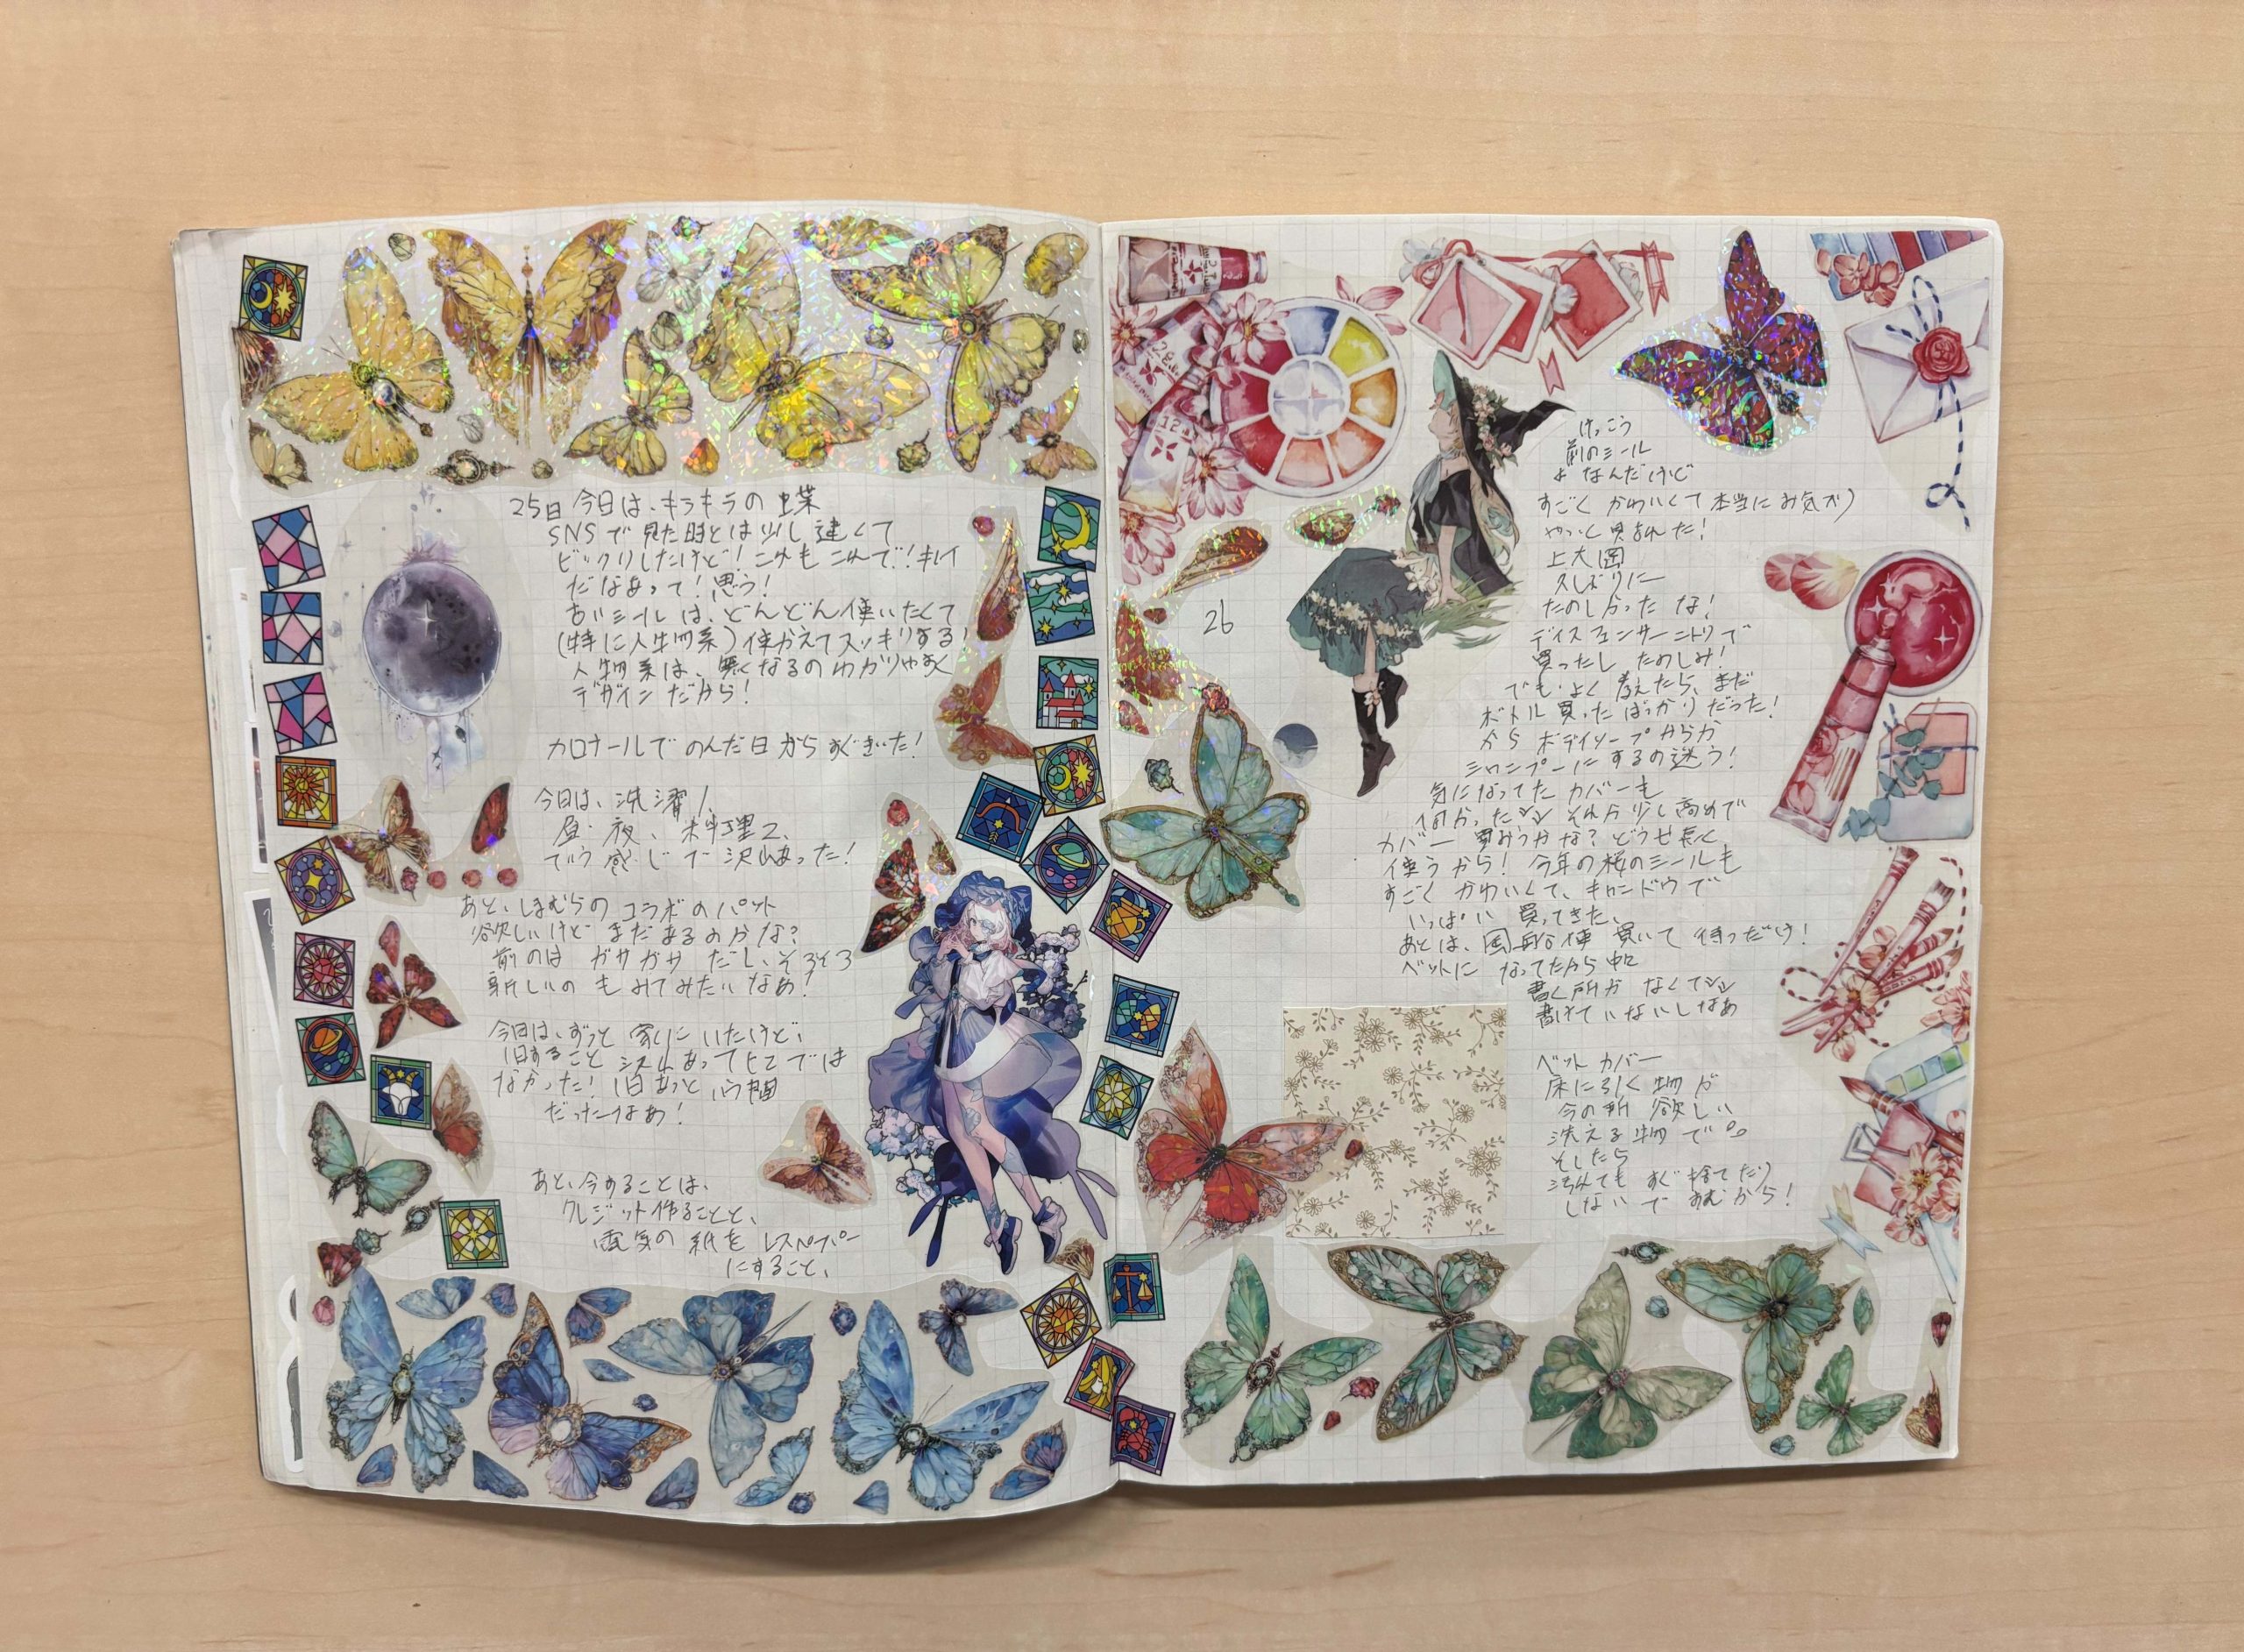 25日 今日は、キラキラの蝶
SNSで見た時とは少し違くて
ビックリしたけど！これもこれで！キレイ
だなあって！思う！
あいシールは、どんどん使いたくて
(特に人物系)使かえてスッキリする！
人物系は、無くなるのわかりやすく
デザインだから！
カロナールでのんだ日からすぐきいた！
今日は、洗濯1、
昼・夜、料理2、
ていう感じで沢山あった！
あと、しまむらのコラボのパット
欲しいけどまだあるのかな？
前のはガサガサだし、そろそろ
新しいのもみてみたいなあ！
今日は、ずっと家にいたけど、
することあってヒマでは
なかった！
だったなあ！
あと、今することは、
クレジット作ることと、
電気の紙をレスペーパー
にすること、
26
けっこう
前のシール
なんだけど
すごくかわいくて本当にお気入り
やっと買えた！
上大岡
久しぶりに
たのしかったな！
ディスフェンサーニトリで
買ったし たのしみ！
でも・よく考えたら、まだ
ボトル買ったばっかりだった！
からボディソープからか
シャンプーにするの迷う！
気になってたカバーも
それか少し高めで
カバー買おうかな？どうせ長く
使うから！今年の桜のシールも
すごくかわいくて、キャンドゥで
いっぱい買ってきた、
あとは、届いて待つだけ！
ベットになってたから
書く所がなくて
書けていないしなあ
ベットカバー
床に引く物が
今の所欲しい
洗える物で
そしたら
汚れてもすぐ捨てたり
しないですむから！